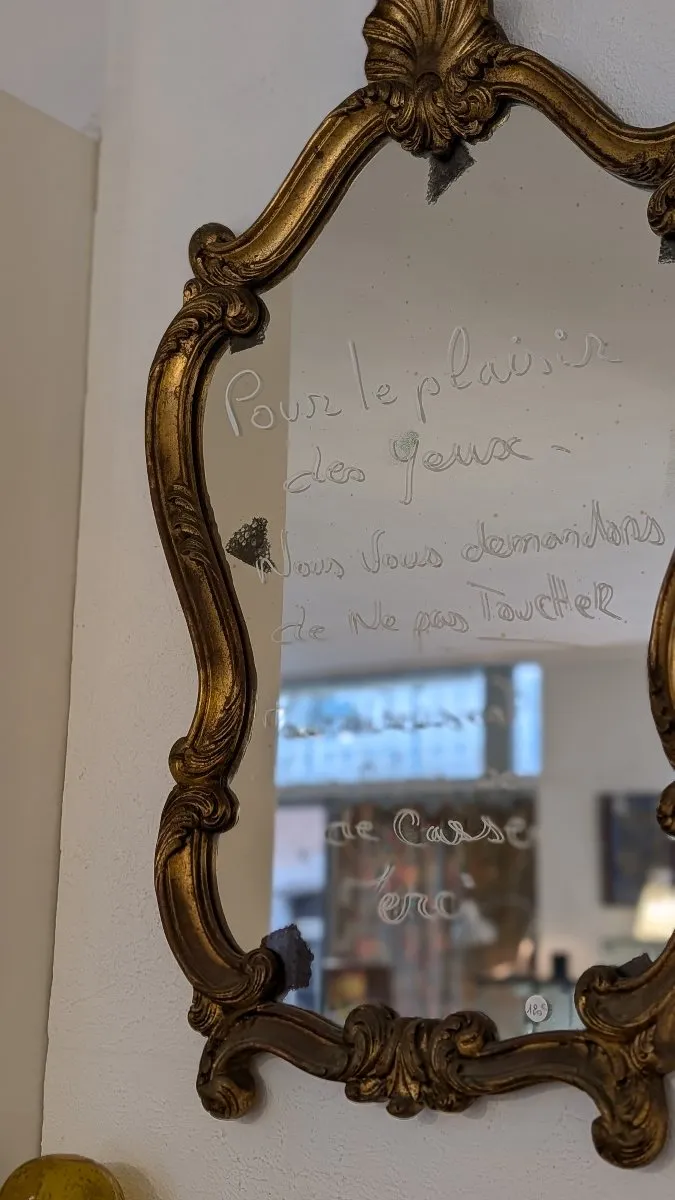 Pour le plaisir
des yeux -
Nous Vous demandons
de Ne pas ToucHeR
de Casse